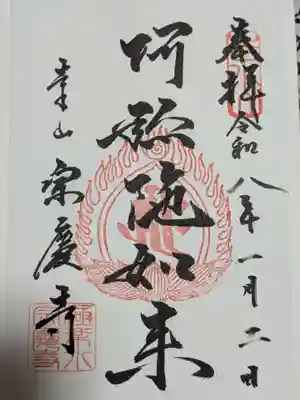 奉拝 令和八年一月二日
阿弥陀如来
吉水山 宗慶寺